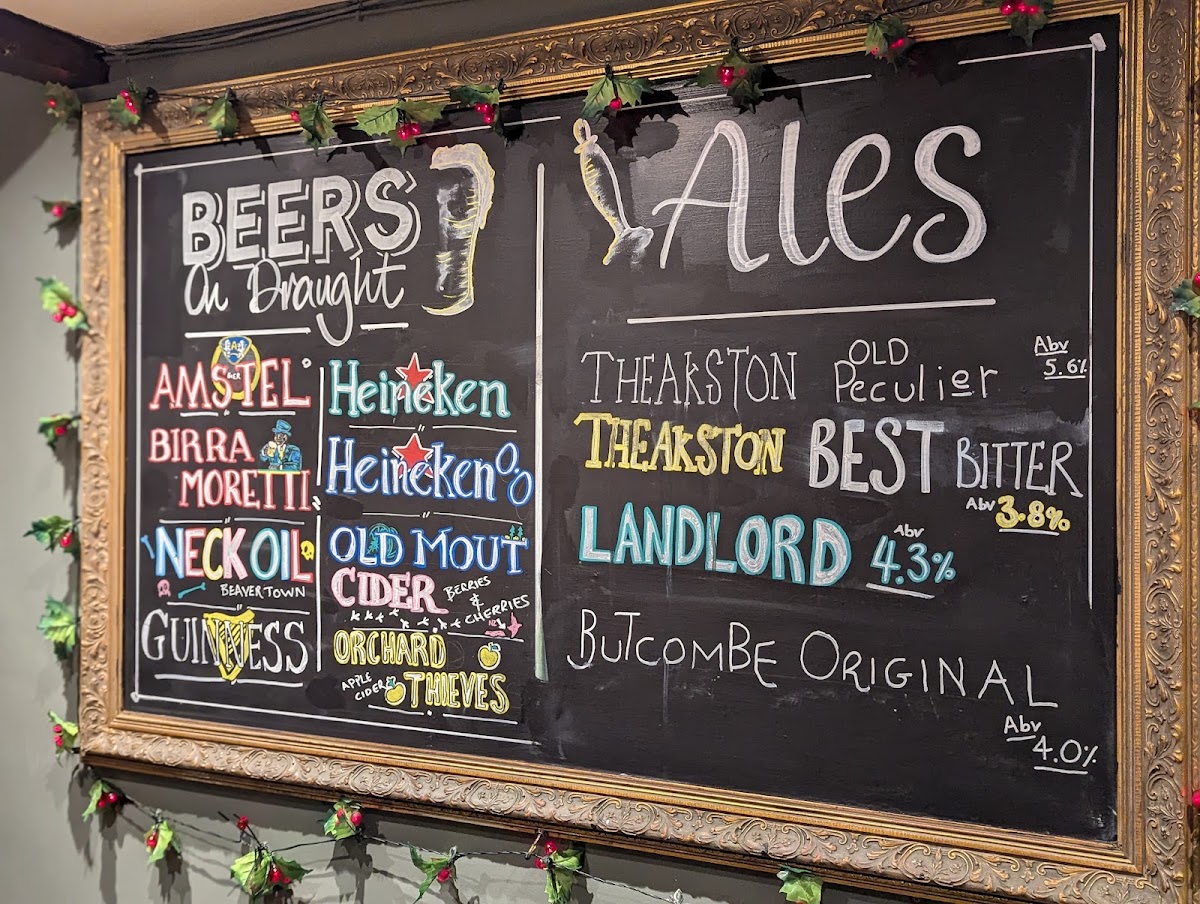 BEERS
On Draught
AMSTEL
BIER
BIRRA
MORETTI
NECK OIL
BEAVERTOWN
GUINNESS
Heineken
Heineken 0.0
OLD MOUT
CIDER
BERRIES
&
CHERRIES
ORCHARD
THIEVES
APPLE
CIDER
Ales
THEAKSTON OLD Peculier Abv 5.6%
THEAKSTON BEST BITTER
Abv 3.8%
LANDLORD Abv 4.3%
BUTCOMBE ORIGINAL
Abv
4.0%